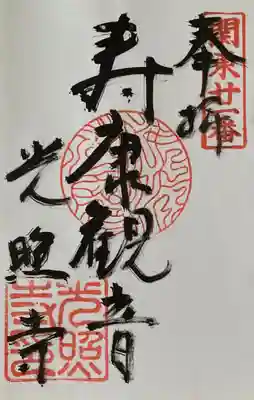 関東廿一番
奉拝
寿康観音
光照寺
光照寺印